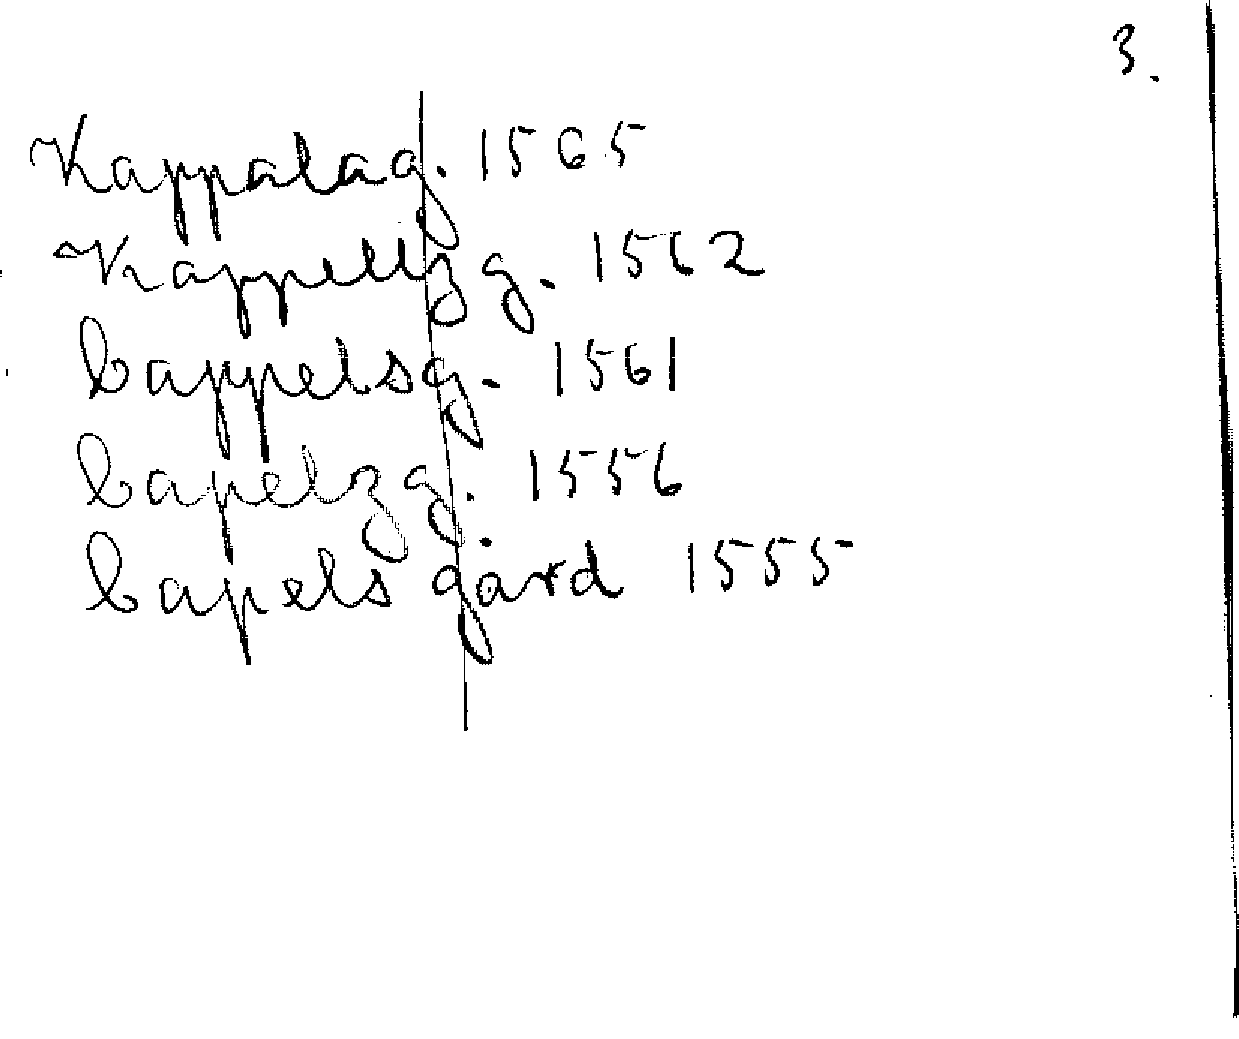 3.
Kappalag. 1565
Kappellzg. 1562
Cappelsg. 1561
Capelzg. 1556
Capels gård 1555